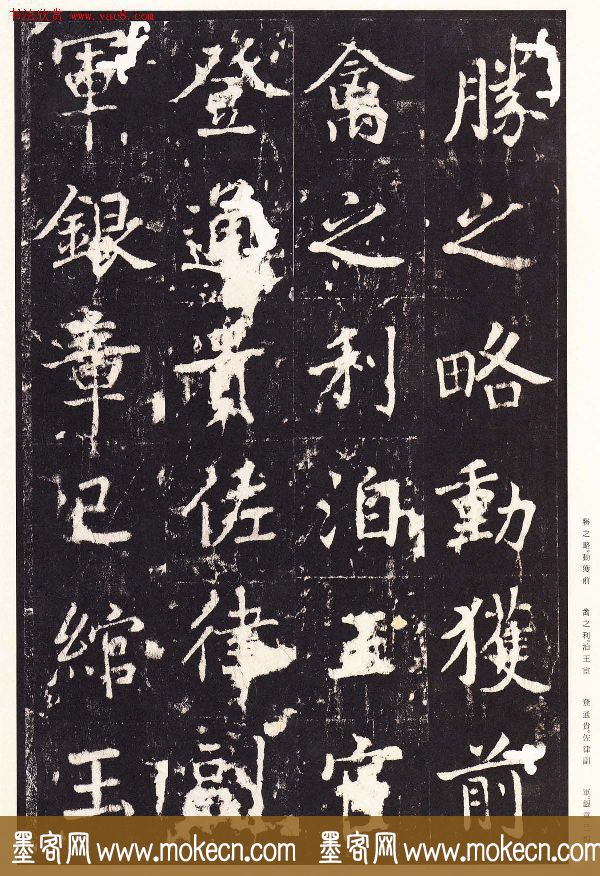 书法欣赏 www.yac8.com
勝之略動獲前
禽之利洎王官
登通貴佐律副
軍銀章已綰玉
勝之略。動獲前
禽之利。洎王官
登通貴。佐律副
軍。銀章已
墨客网 www.mokecn.com 墨客网 www.mokecn.com